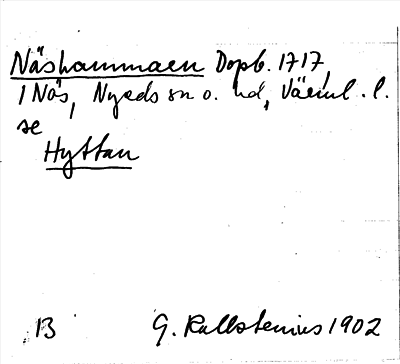 Näshammaren Dopb. 1717,
/Näs, Nyeds sn o. hd, Värml. l.
se
Hyttan
B G. Kallstenius 1902